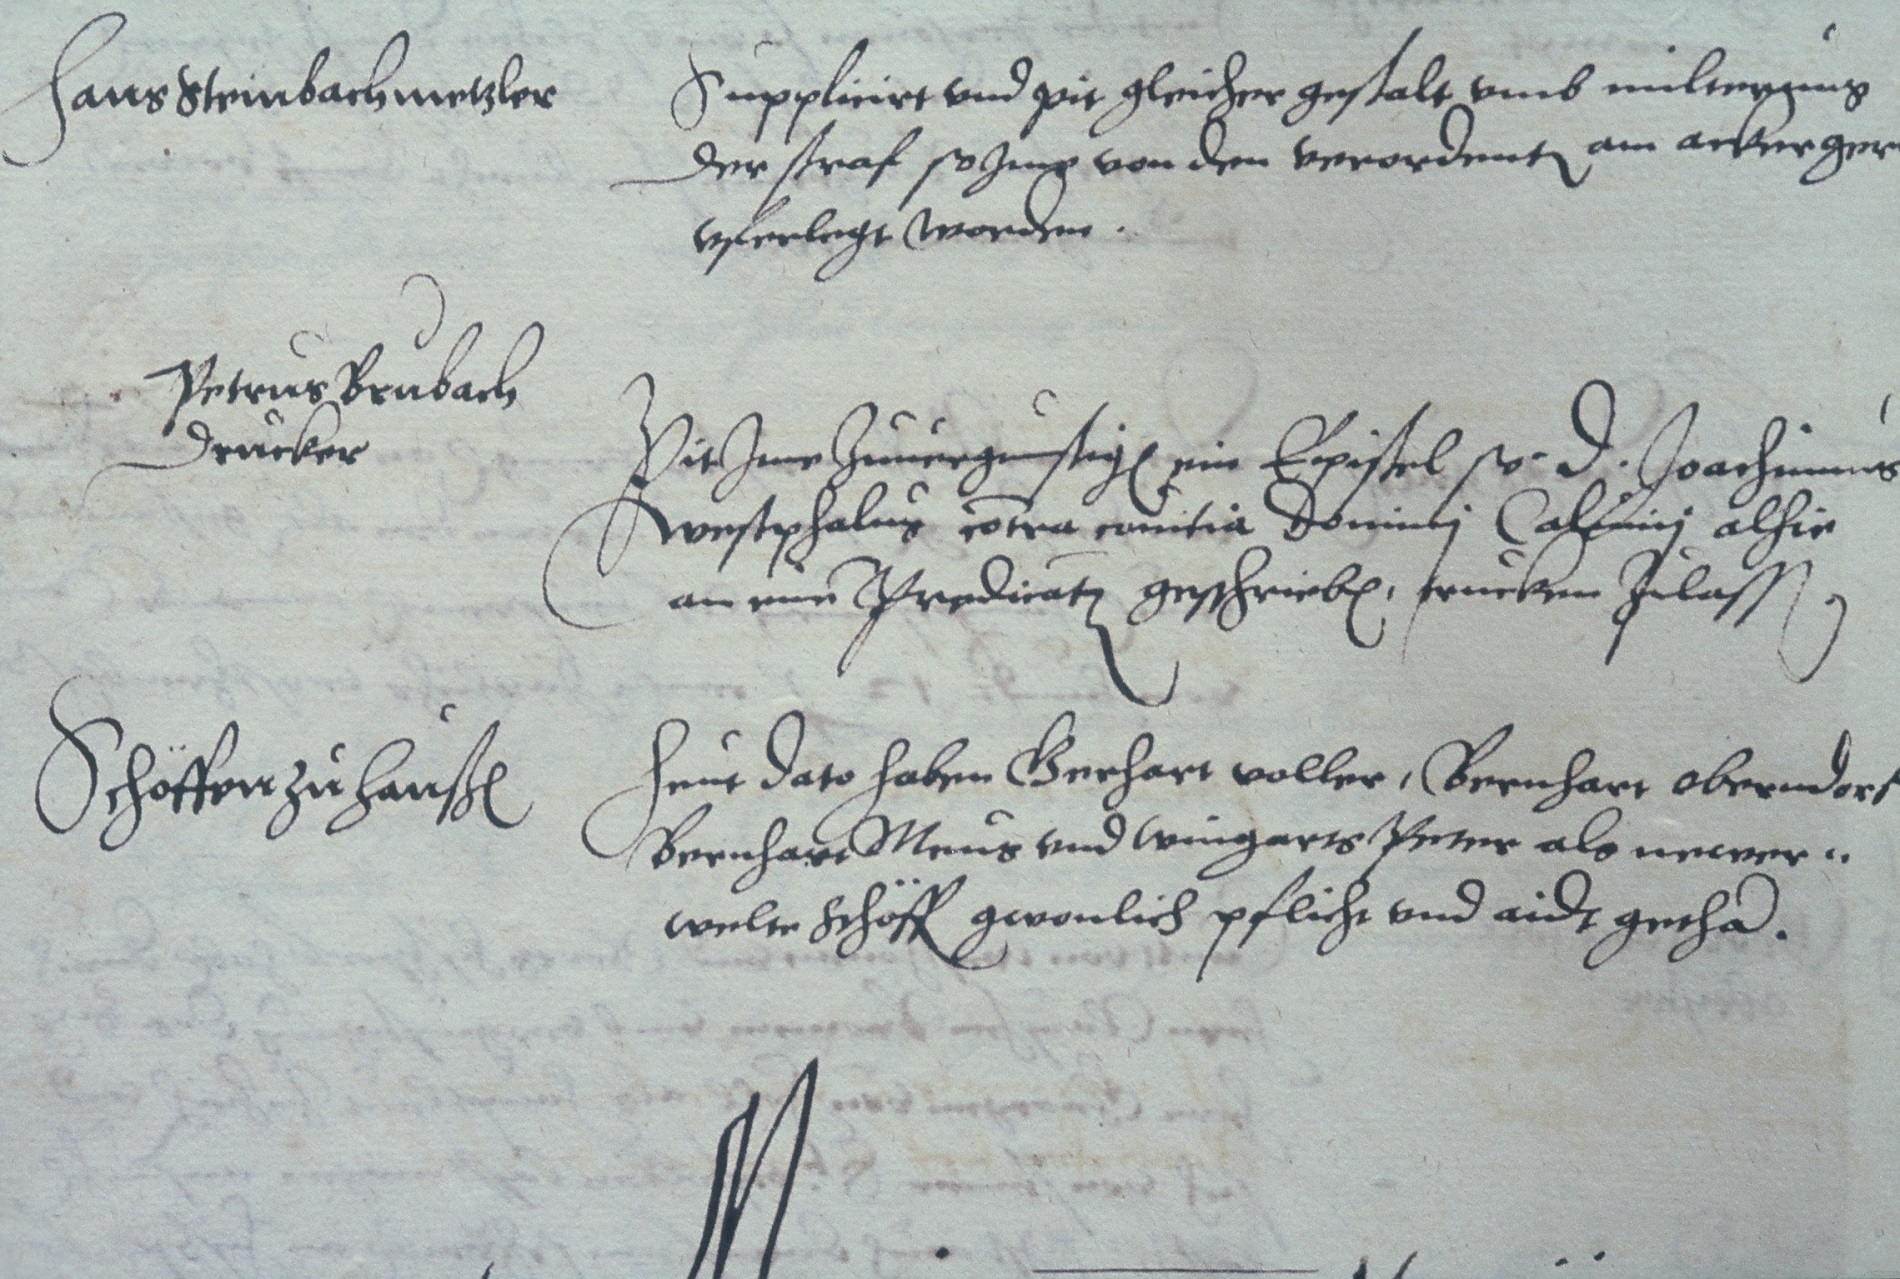 Hans Steinbach metzler
Suppliciert vnd pit gleicher gestalt vmb miltervng
der straf so Ime von den verordentn am ackergeri
vferlegt worden.
Petrus Brubach
Drucker
Pit Ime zuuergunstign ein Epistel so D. Joachimus
westphalus cōtra comitia Dominj Caluinj alhie
an eine Predicatn geschriebn, trucken zulassn
Schöffen zu Haußn
Heut dato haben Gerhart voller, Bernhart oberndorf
Bernhart Meus vnd wingarts Peter als newer
welte schöff gwonlich pflicht vnd aidt gethā.